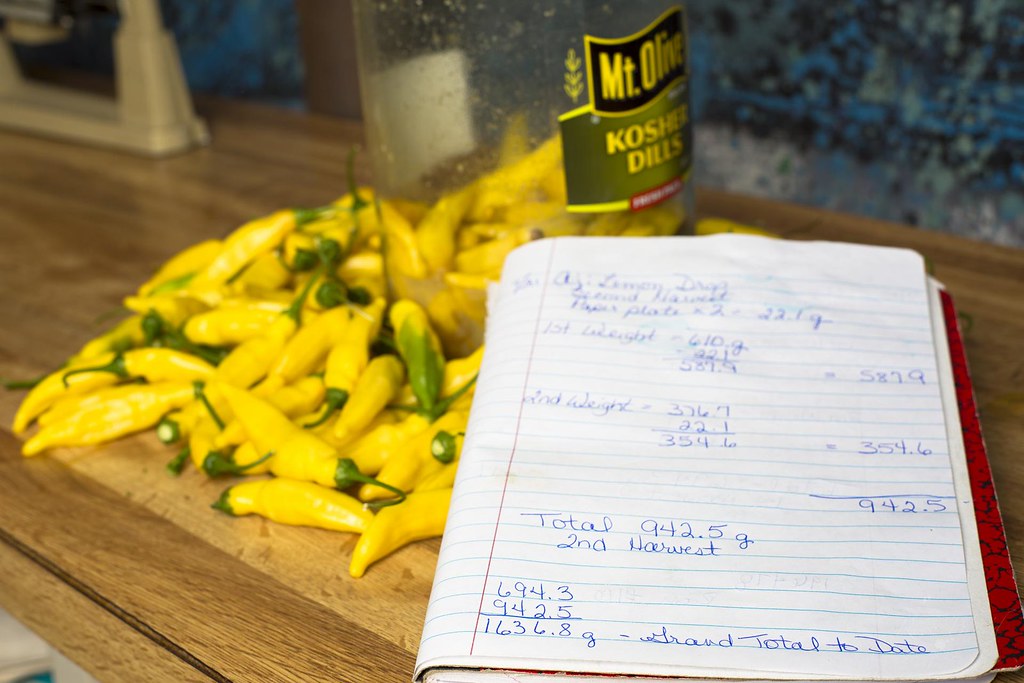 Mt. Olive
KOSHER
DILLS
Aji Lemon Drop
Second Harvest
Paper plate x 2 = 22.1 g
1st Weight - 610 g
- 22.1
587.9 = 587.9
2nd Weight = 376.7
22.1
354.6 = 354.6
942.5
Total 942.5 g
2nd Harvest
694.3
942.5
1636.8 g - Grand Total to Date